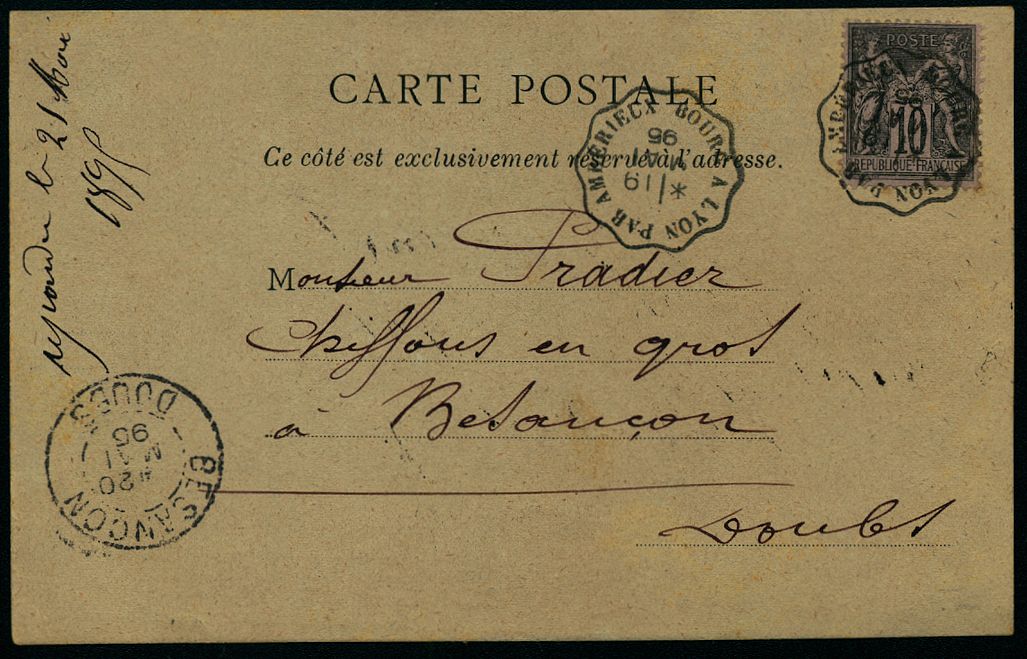 POSTE
10
RÉPUBLIQUE FRANÇAISE
CARTE POSTALE
Ce côté est exclusivement réservé à l'adresse.
BOURG A LYON PAR AMBERIEUX
* 19
MAI
95
Monsieur Pradier
Chiffons en gros
à Besançon
Doubs
BESANÇON
DOUBS
20
MAI
95
répondu le 21 Mai
1895